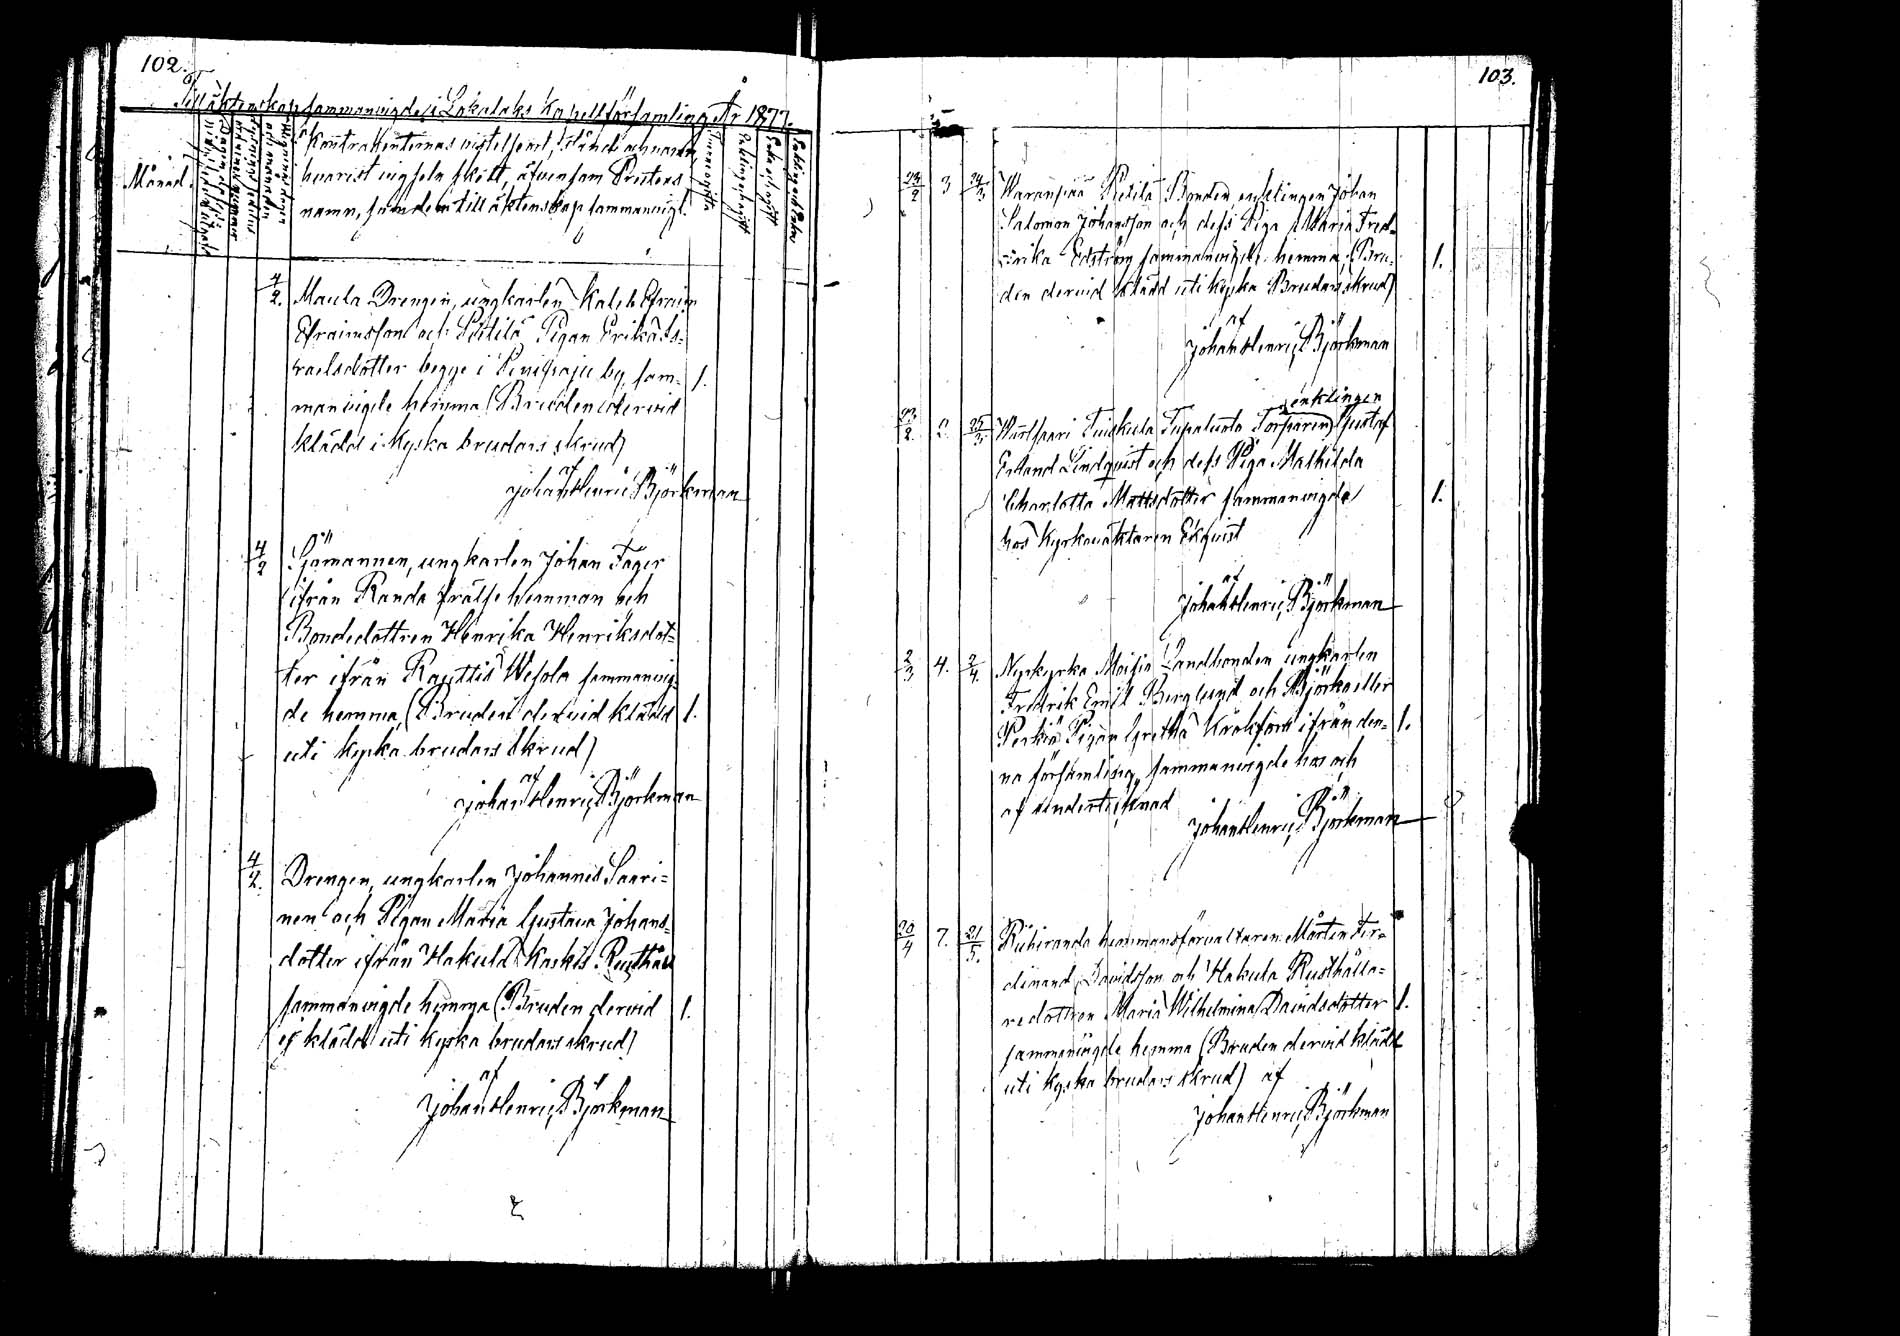 102.
Till äktenskap sammanvigde i Lokalaks Kapellförsamling År 1877.
Månad.
Kontrahenternas vistelseort, stånd och namn,
hvarest vigseln skett, äfvensom Prestens
namn, som dem till äktenskap sammanvigt.
4/2. Maula Drengen, ungkarlen Kaleb Efraim
Efraimsson och Pietilä Pigan Erika Is-
raelsdotter begge i
by, sam- 1.
manvigde hemma (Bruden dervid
klädd i kyska brudars skrud)
af
Johan Henric Björkman
4/2 Sjömannen, ungkarlen Johan Fager
ifrån Randa frälse hemman och
Bondedottren Henrika Henriksdot-
ter ifrån Rauttis Wesola sammanvig-
de hemma, (Bruden dervid klädd 1.
uti kyska brudars skrud)
af
Johan Henric Björkman
4/2. Drengen, ungkarlen Johannes Saari=
nen och Pigan Maria Gustava Johans-
dotter ifrån Hakula Kaskis Rusthåll
sammanvigde hemma (Bruden dervid 1.
ej klädd uti kyska brudars skrud)
af
Johan Henric Björkman
103.
23/2 3 24/3 Waranpää Pietilä Bonden enklingen Johan
Salomon Johansson och dess Piga Maria Fred-
rika Edström sammanvigde hemma, (Bru- 1.
den dervid klädd uti kyska Brudars skrud)
af
Johan Henric Björkman
enklingen
23/2. 2. 25/3. Tuiskula Tupaluoto Torparen Gustaf
Erland Lindquist och dess Piga Mathilda
Charlotta Mattsdotter sammanvigde 1.
hos Kyrkovaktaren Ekquist
af
Johan Henric Björkman
2/3 4. 2/4. Nykyrka Moisio Landbonden ungkarlen
Fredrik Emil Berglund och Björko eller
Pigan Gretha Krökfors ifrån den- 1.
na församling, sammanvigde hos och
af undertecknad
Johan Henric Björkman
20/4 7. 21/5. Riihiranda hemmansförvaltaren Mårten Fer=
dinand Davidsson och Hakula Rusthålla=
redottren Maria Wilhelmina Davidsdotter 1.
sammanvigde hemma (Bruden dervid klädd
uti kyska brudars skrud) af
Johan Henric Björkman